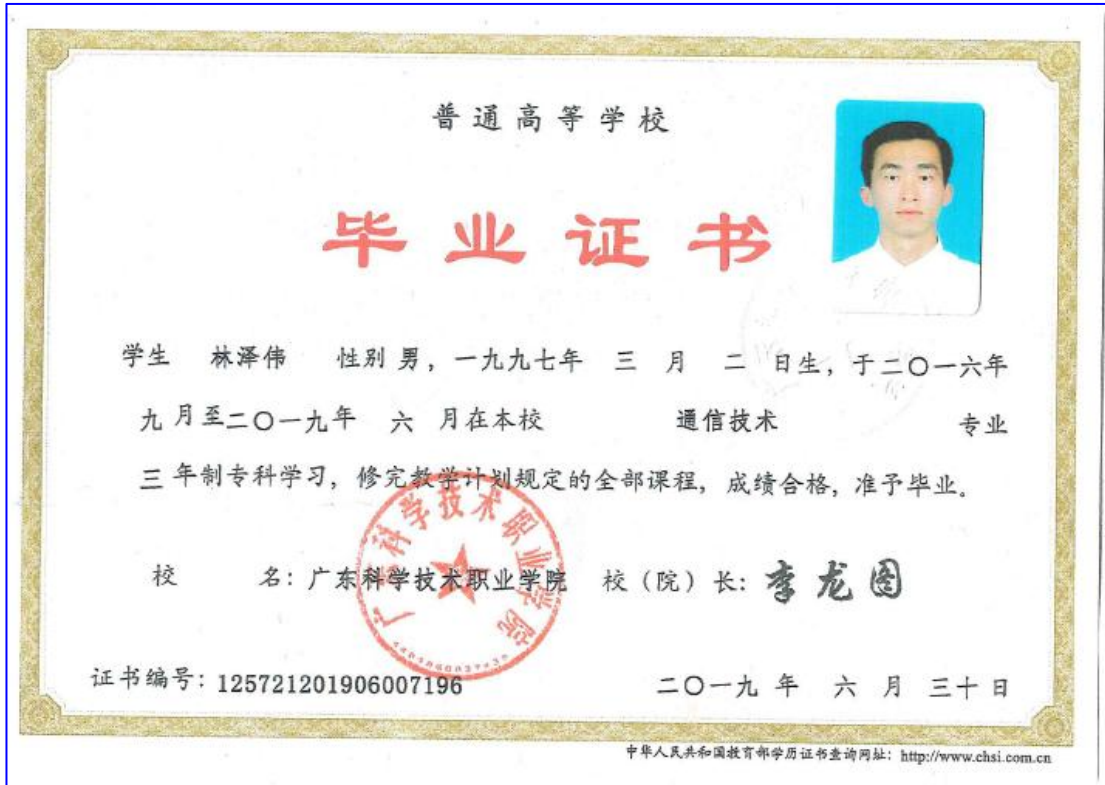 普通高等学校
毕业证书
学生 林泽伟 性别 男，一九九七年 三 月 二 日生，于二〇一六年
九 月至二〇一九年 六 月在本校 通信技术 专业
三 年制专科学习，修完教学计划规定的全部课程，成绩合格，准予毕业。
广东科学技术职业学院
校 名：广东科学技术职业学院 校（院）长：李龙图
证书编号：125721201906007196 二〇一九 年 六 月 三十 日
中华人民共和国教育部学历证书查询网址：http://www.chsi.com.cn